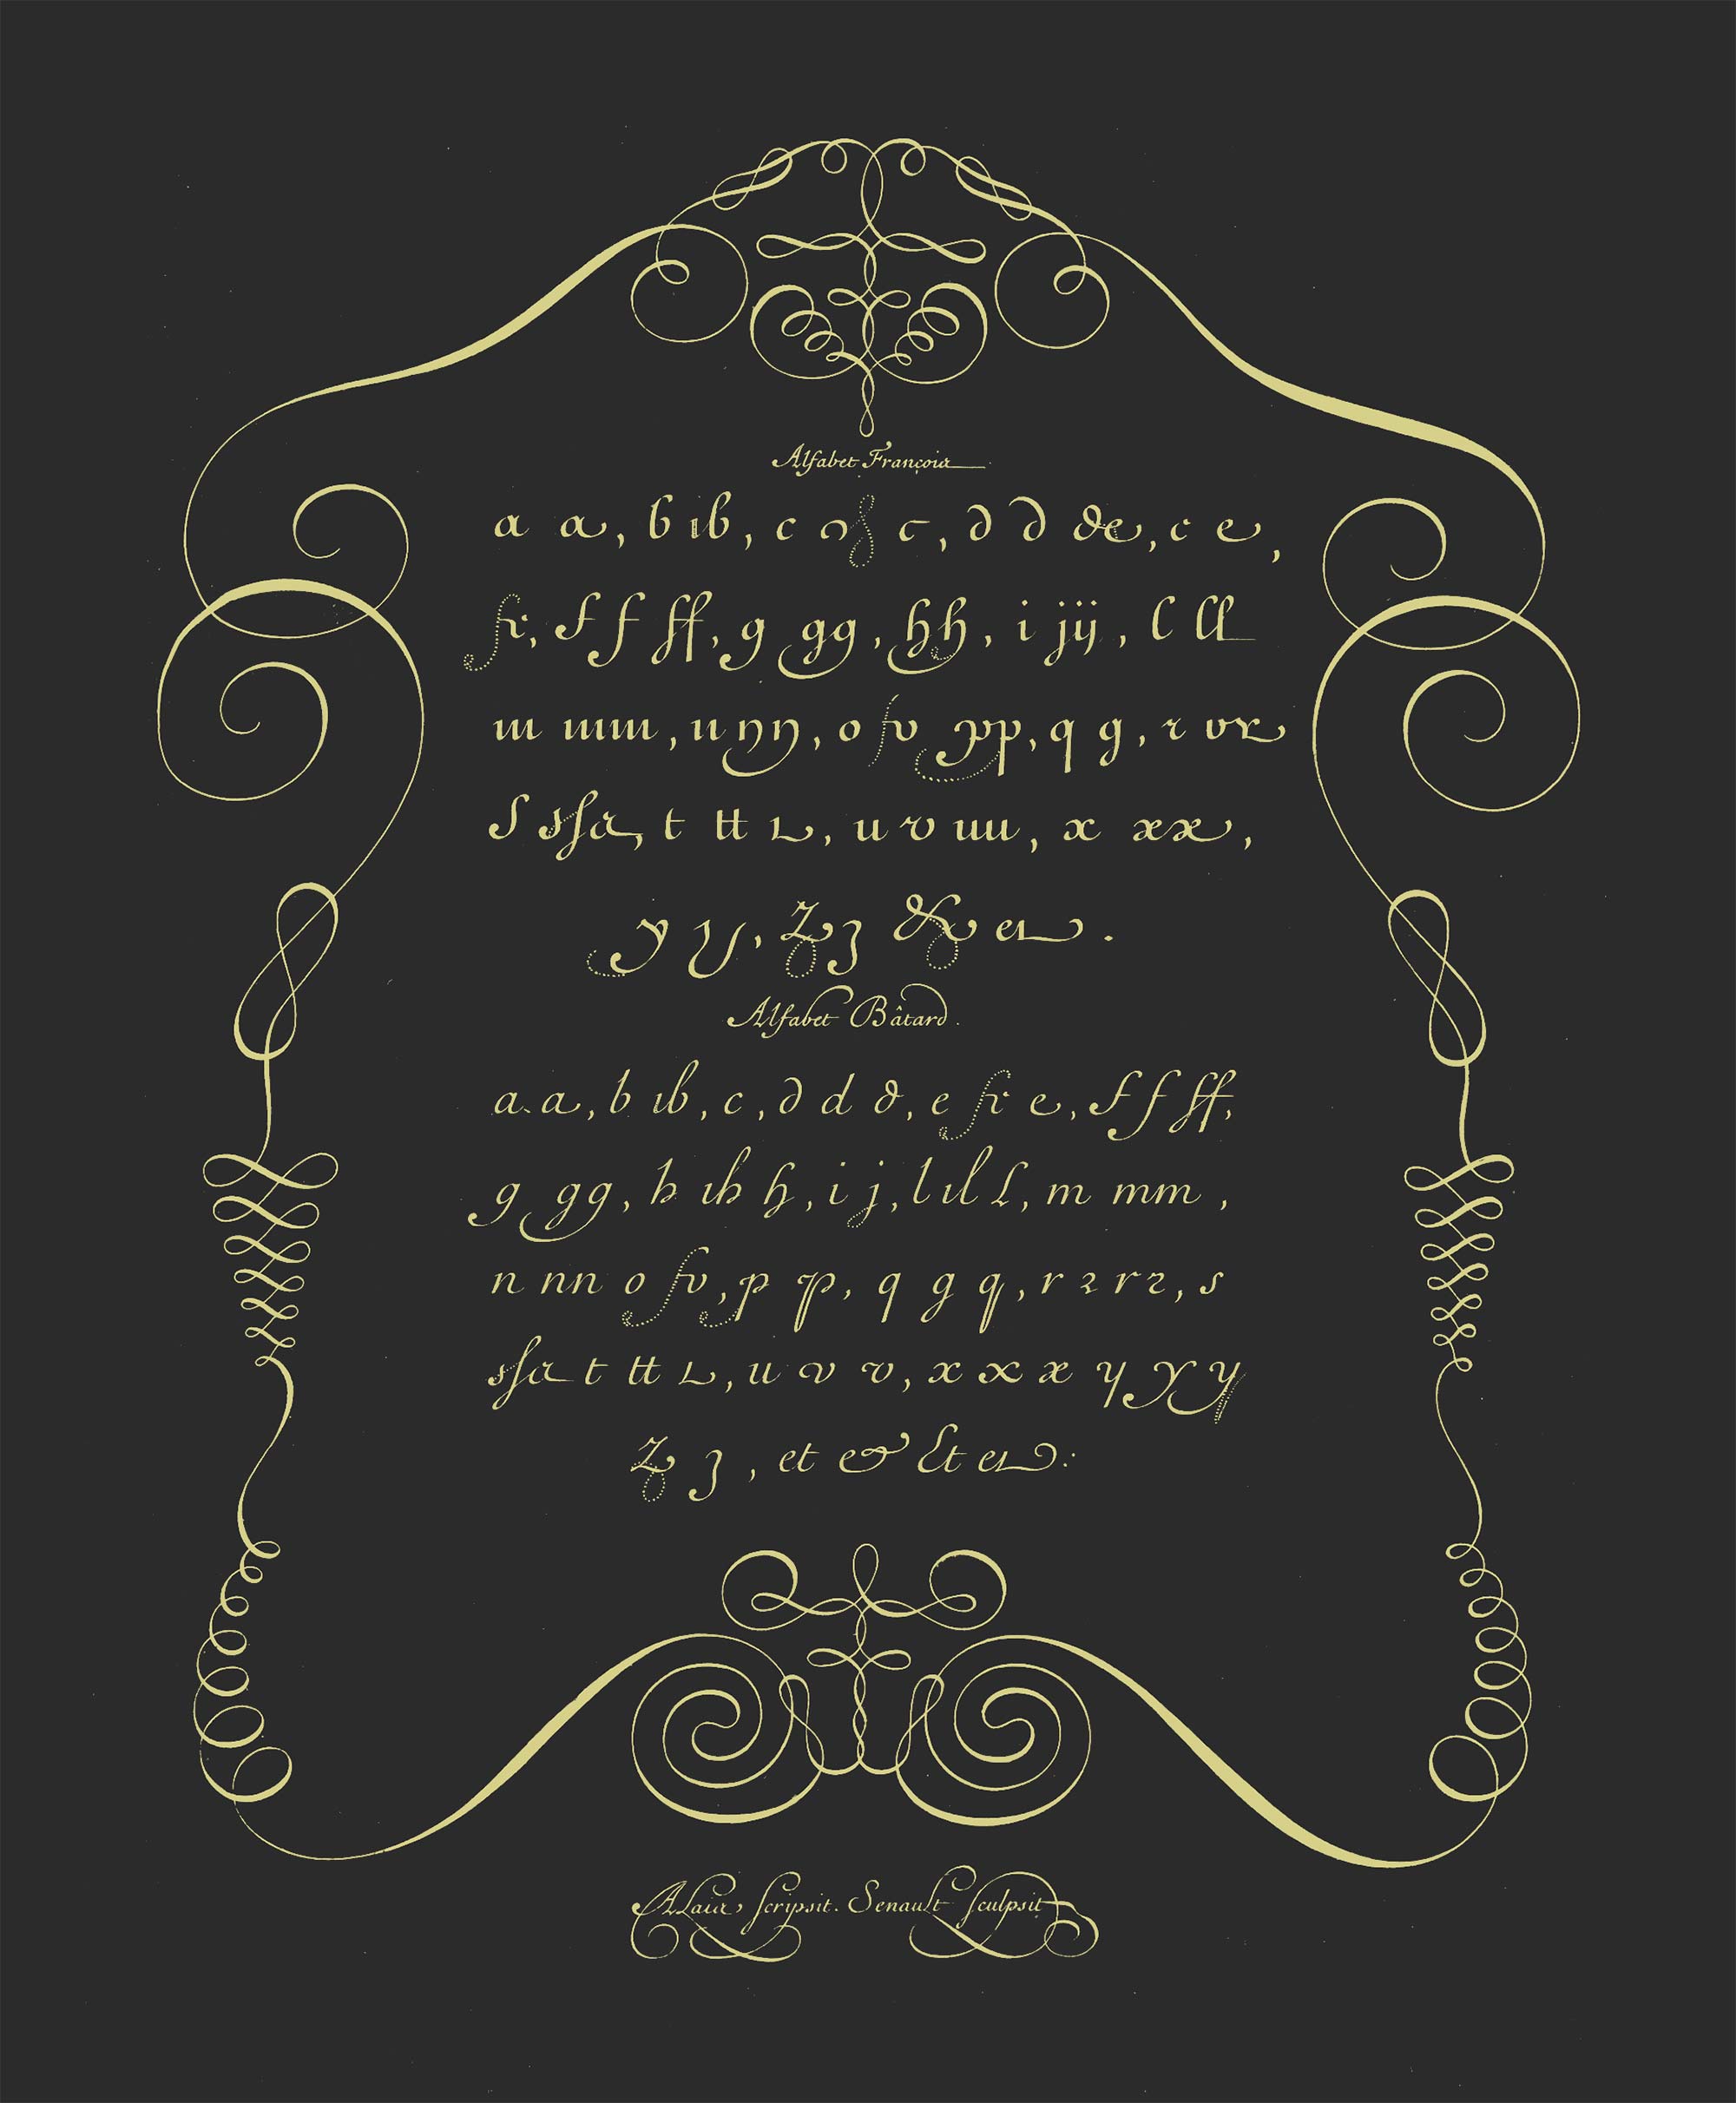 Alfabet François
a a, b ib, c c c, d d de, e e,
f f ff, g gg, h h, i jij, l ll
m mm, n nn, o v pp, q g, r vr
S ssa, t tt t, u v uu, x xx,
y y, z z & et.
Alfabet Bâtard.
a a, b ib, c, d d d, e e, f f ff,
g gg, h ih h, i j, l il l, m mm,
n nn o v, p p, q g q, r r r r, s
ssa t tt t, u v v, x x x y y y
z z, et & Et et:
Alais, scripsit. Senault sculpsit